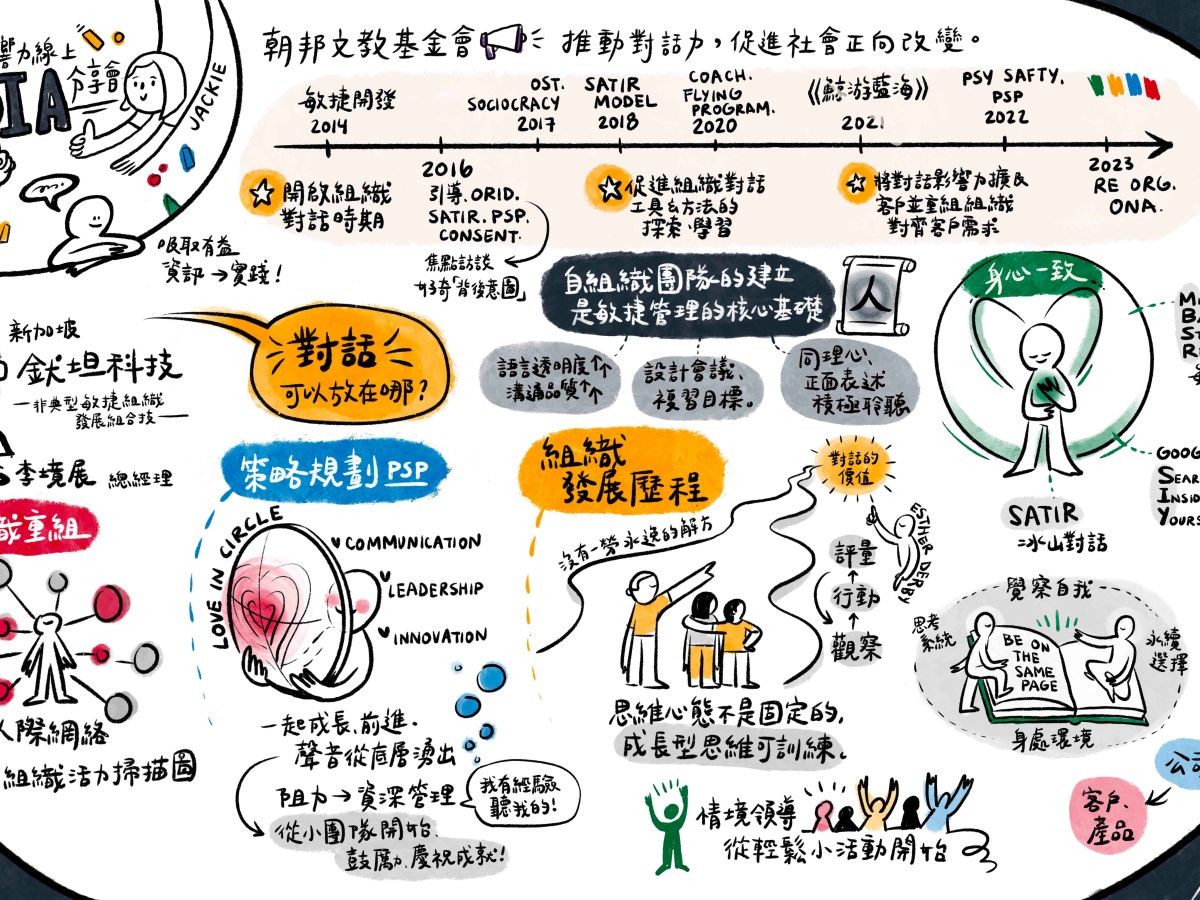 響力線上
分享會
IA
JACKIE
吸取有益
資訊→實踐!
朝邦文教基金會 推動對話力,促進社會正向改變。
敏捷開發
2014
OST.
SOCIOCRACY
2017
SATIR
MODEL
2018
COACH.
FLYING
PROGRAM.
2020
《鯨游藍海》
2021
PSY SAFTY.
PSP
2022
開啟組織
對話時期
2016
引導.ORID.
SATIR.PSP.
CONSENT.
焦點訪談
好奇「背後意圖」
促進組織對話
工具&方法的
探索、學習
將對話影響力擴及
客戶並重組組織
對齊客戶需求
2023
RE ORG.
ONA.
新加坡
鈦坦科技
非典型敏捷組織
發展組合技
李境展 總經理
織重組
人際網絡
組織活力掃描圖
對話
可以放在哪?
自組織團隊的建立
是敏捷管理的核心基礎
人
語言透明度↑↑
溝通品質↑↑
設計會議、
複習目標。
同理心、
正面表述
積極聆聽
身心一致
SATIR
=冰山對話
策略規劃PSP
LOVE IN CIRCLE
COMMUNICATION
LEADERSHIP
INNOVATION
一起成長、前進.
聲音從底層湧出
阻力→資深管理
我有經驗
聽我的!
從小團隊開始、
鼓勵、慶祝成就!
組織
發展歷程
沒有一勞永逸的解方
對話的
價值
ESTHER DERBY
評量
↑
行動
↑
觀察
思維心態不是固定的,
成長型思維可訓練。
情境領導
從輕鬆小活動開始
覺察自我
思考
系統
BE ON
THE
SAME
PAGE
永續
選擇
身處環境
GOOG
SEAR
INSID
YOURS
客戶、
產品